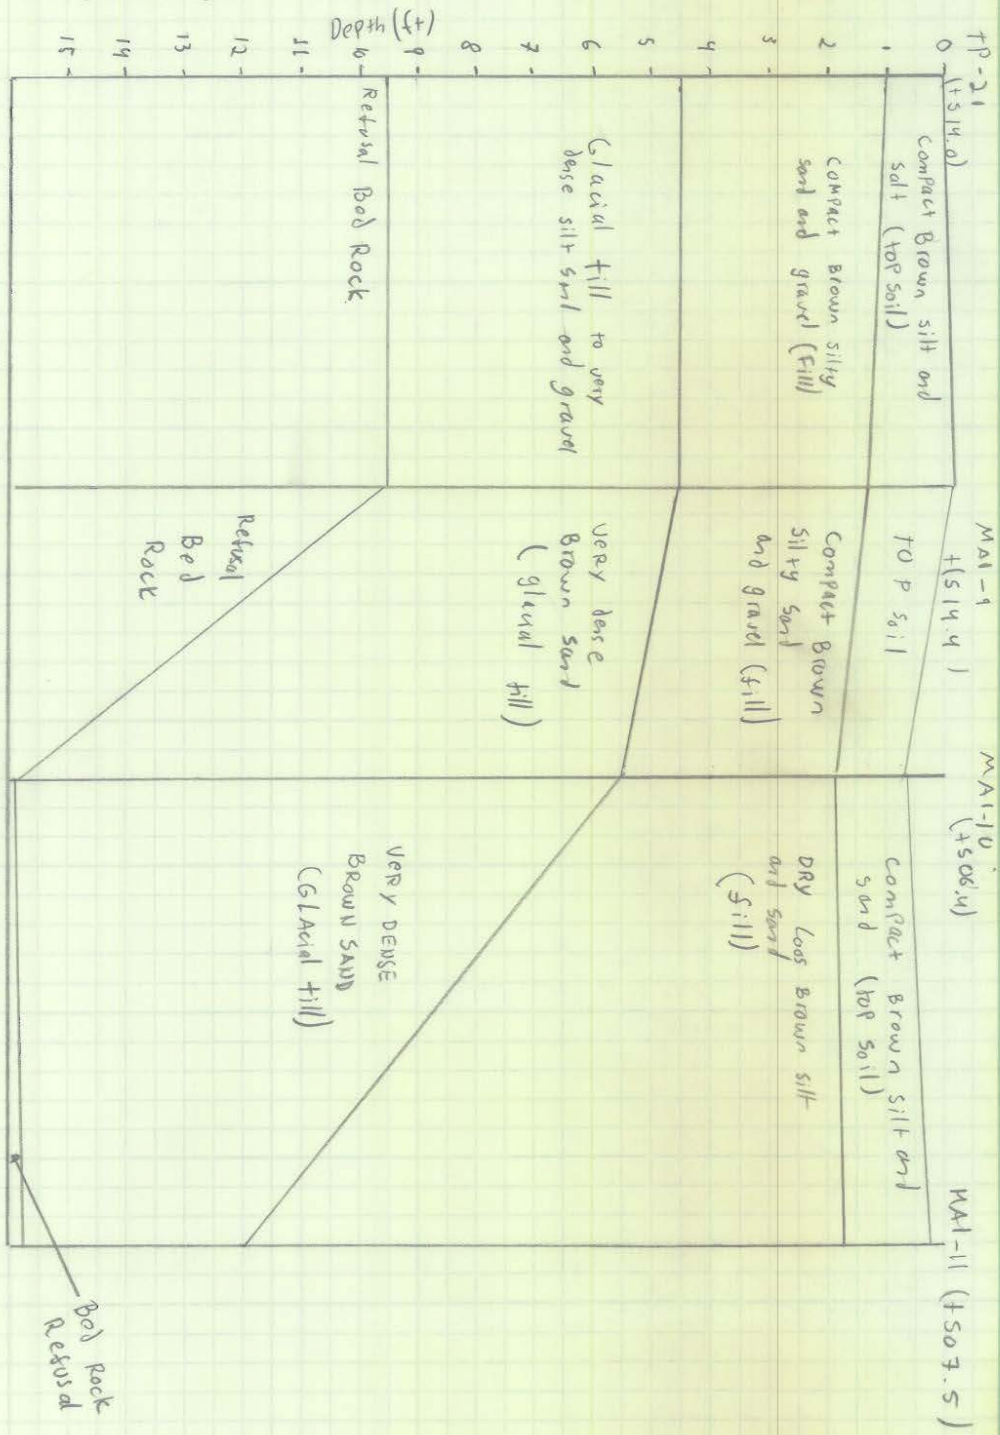 TP-21
(+514.0)
MA1-9
+(514.4)
MA1-10
(+506.4)
MA1-11 (+507.5)
Depth (ft)
0
1
2
3
4
5
6
7
8
9
10
11
12
13
14
15
Compact Brown silt and
salt (top soil)
Compact Brown silty
sand and gravel (Fill)
Glacial till to very
dense silt sand and gravel
Refusal Bed Rock
TOP soil
Compact Brown
silty sand
and gravel (fill)
VERY dense
Brown sand
(glacial till)
Refusal
Bed
Rock
Compact Brown silt and
sand (top soil)
DRY Loos Brown silt
and sand
(fill)
VERY DENSE
BROWN SAND
(GLAcial till)
Bed Rock
Refusal